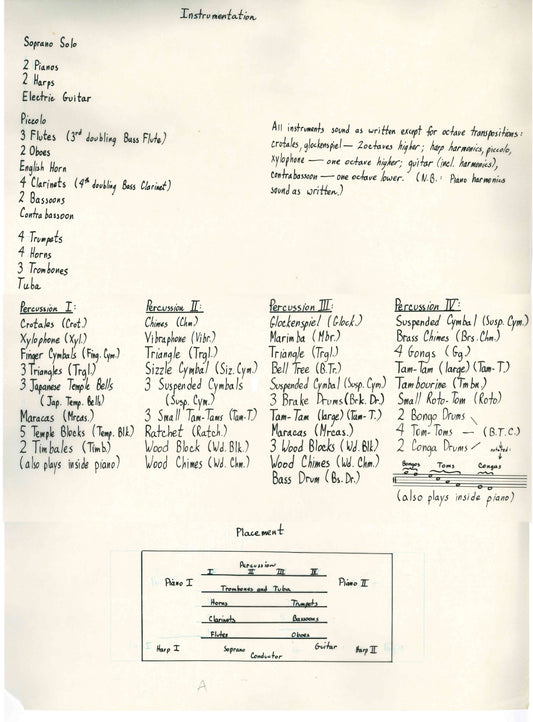 Instrumentation
Soprano Solo
2 Pianos
2 Harps
Electric Guitar
Piccolo
3 Flutes (3rd doubling Bass Flute)
2 Oboes
English Horn
4 Clarinets (4th doubling Bass Clarinet)
2 Bassoons
Contrabassoon
4 Trumpets
4 Horns
3 Trombones
Tuba
All instruments sound as written except for octave transpositions:
crotales, glockenspiel — 2octaves higher; harp harmonics, piccolo,
xylophone — one octave higher; guitar (incl. harmonics),
contrabassoon — one octave lower. (N.B.: Piano harmonics
sound as written.)
Percussion I:
Crotales (Crot.)
Xylophone (Xyl.)
Finger Cymbals (Fing. Cym.)
3 Triangles (Trgl.)
3 Japanese Temple Bells
(Jap. Temp. Bells)
Maracas (Mrcas.)
5 Temple Blocks (Temp. Blk)
2 Timbales (Timb)
(also plays inside piano)
Percussion II:
Chimes (Chm.)
Vibraphone (Vibr.)
Triangle (Trgl.)
Sizzle Cymbal (Siz. Cym.)
3 Suspended Cymbals
(Susp. Cym.)
3 Small Tam-Tams (Tam-T.)
Ratchet (Ratch.)
Wood Block (Wd. Blk.)
Wood Chimes (Wd. Chm.)
Percussion III:
Glockenspiel (Glock.)
Marimba (Mbr.)
Triangle (Trgl.)
Bell Tree (B.Tr.)
Suspended Cymbal (Susp. Cym.)
3 Brake Drums (Brk. Dr.)
Tam-Tam (large) (Tam-T.)
Maracas (Mrcas.)
3 Wood Blocks (Wd. Blk)
Wood Chimes (Wd. Chm.)
Bass Drum (Bs. Dr.)
Percussion IV:
Suspended Cymbal (Susp. Cym.)
Brass Chimes (Brs. Chm.)
4 Gongs (Gg.)
Tam-Tam (large) (Tam-T.)
Tambourine (Tmbn.)
Small Roto-Tom (Roto)
2 Bongo Drums
4 Tom-Toms — (B.T.C.)
2 Conga Drums
notated:
Bongos Toms Congas
(also plays inside piano)
Placement
Percussion
I II III IV
Piano I Piano II
Trombones and Tuba
Horns Trumpets
Clarinets Bassoons
Flutes Oboes
Harp I Soprano Guitar Harp II
Conductor
A